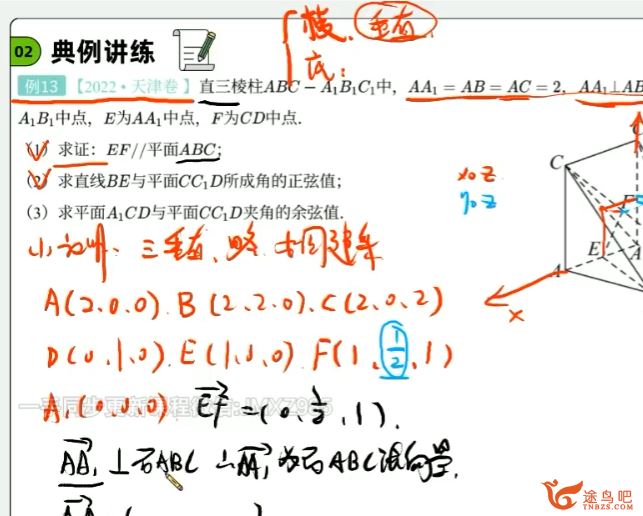 棱、垂直
底：
02 典例讲练
例13 【2022·天津卷】直三棱柱ABC－A₁B₁C₁中，AA₁＝AB＝AC＝2，AA₁⊥AB
A₁B₁中点，E为AA₁中点，F为CD中点.
(1) 求证：EF//平面ABC；
(2) 求直线BE与平面CC₁D所成角的正弦值；
(3) 求平面A₁CD与平面CC₁D夹角的余弦值.
xoz
yoz
C
E
A
x
三垂直、略 如图建系
A(2,0,0). B(2,2,0). C(2,0,2)
D(0,1,0). E(1,0,0). F(1, 1/2, 1)
A₁(0,0,0) EF=(0,1/2,1).
AA₁⊥面ABC ∴AA₁为面ABC法向量.
AA₁=(
途鸟吧
TNBZS.COM